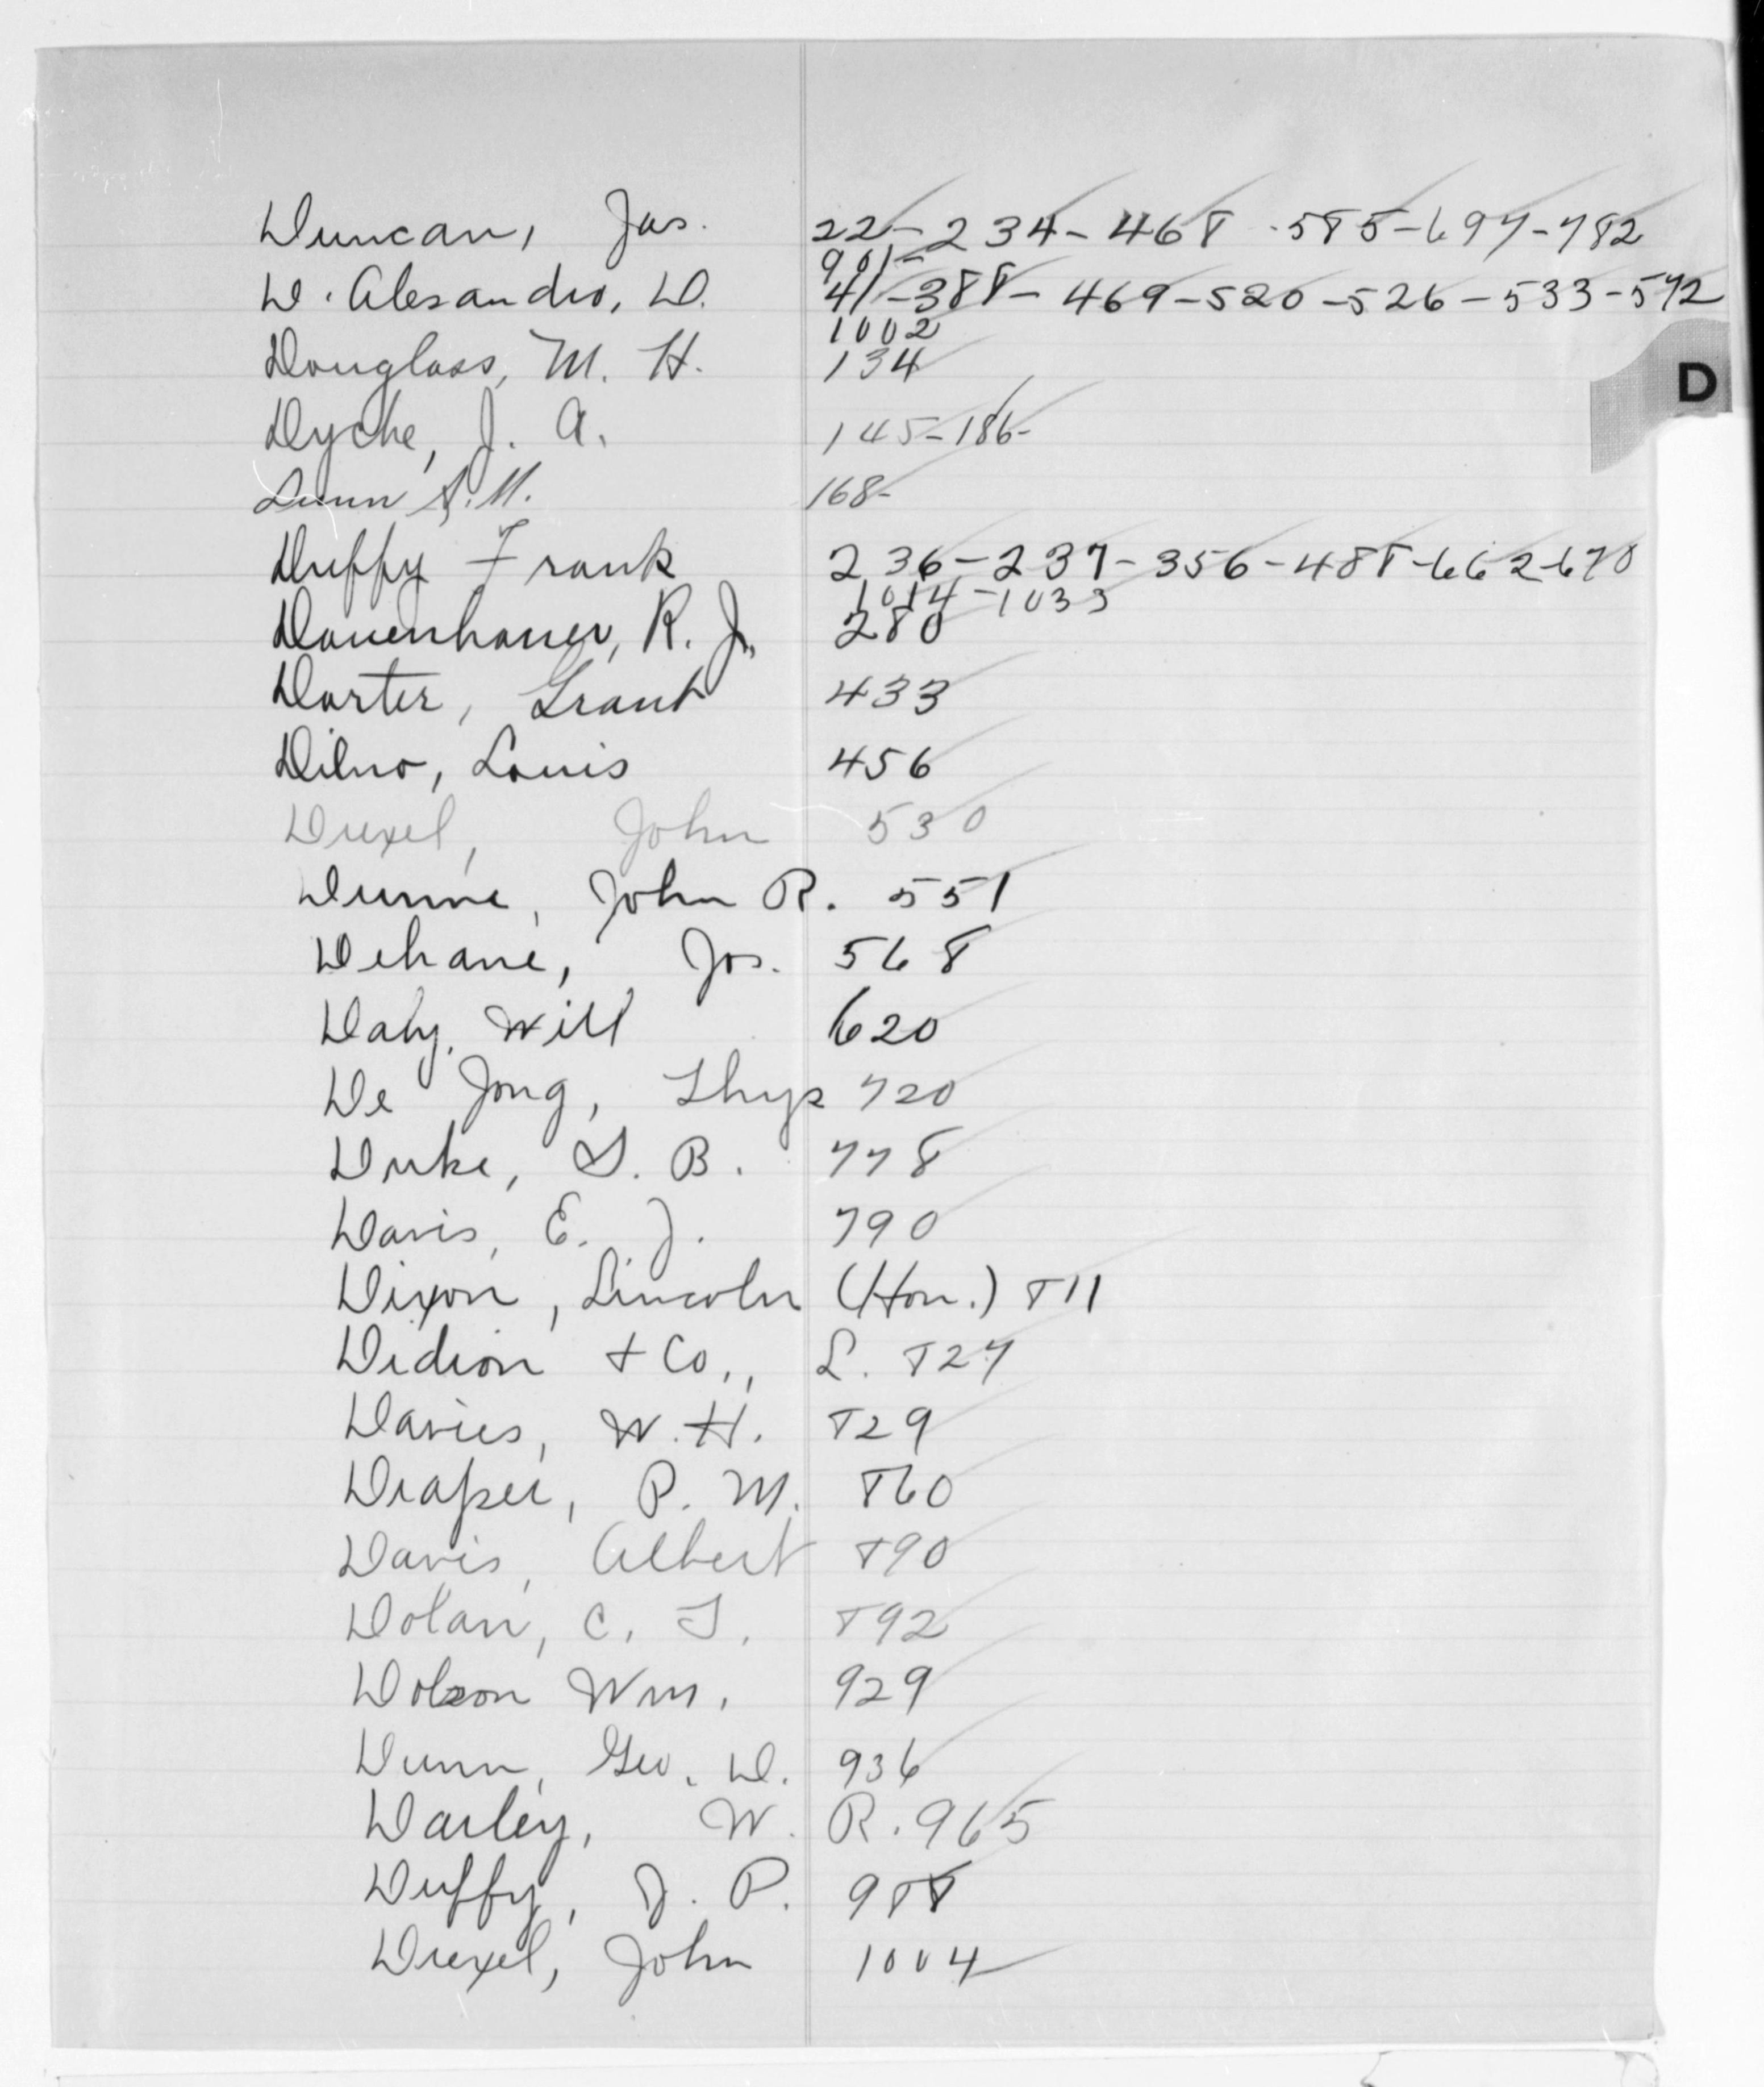 Duncan, Jas. 22-234-468-585-697-782
901-
D'Alesandro, D. 41-388-469-520-526-533-572
1002
Douglass, M. H. 134
D
Dyche, J. A. 145-186-
Dunn S.M. 168-
Duffy Frank 236-237-356-488-662-670
1014-1033
Dauenhauer, R. J. 280
Darter, Grant 433
Dilno, Louis 456
Drexel, John 530
Dunne, John R. 551
Dehane, Jos. 568
Daly, Will 620
De Jong, Thys 720
Duke, S. B. 778
Davis, E. J. 790
Dixon, Lincoln (Hon.) 811
Didion & Co., L. 827
Davies, W. H. 829
Draper, P. M. 860
Davis, Albert 890
Dolan, C. J. 892
Dobson Wm. 929
Dunn, Geo. D. 936
Darley, W. R. 965
Duffy, J. P. 988
Drexel, John 1004